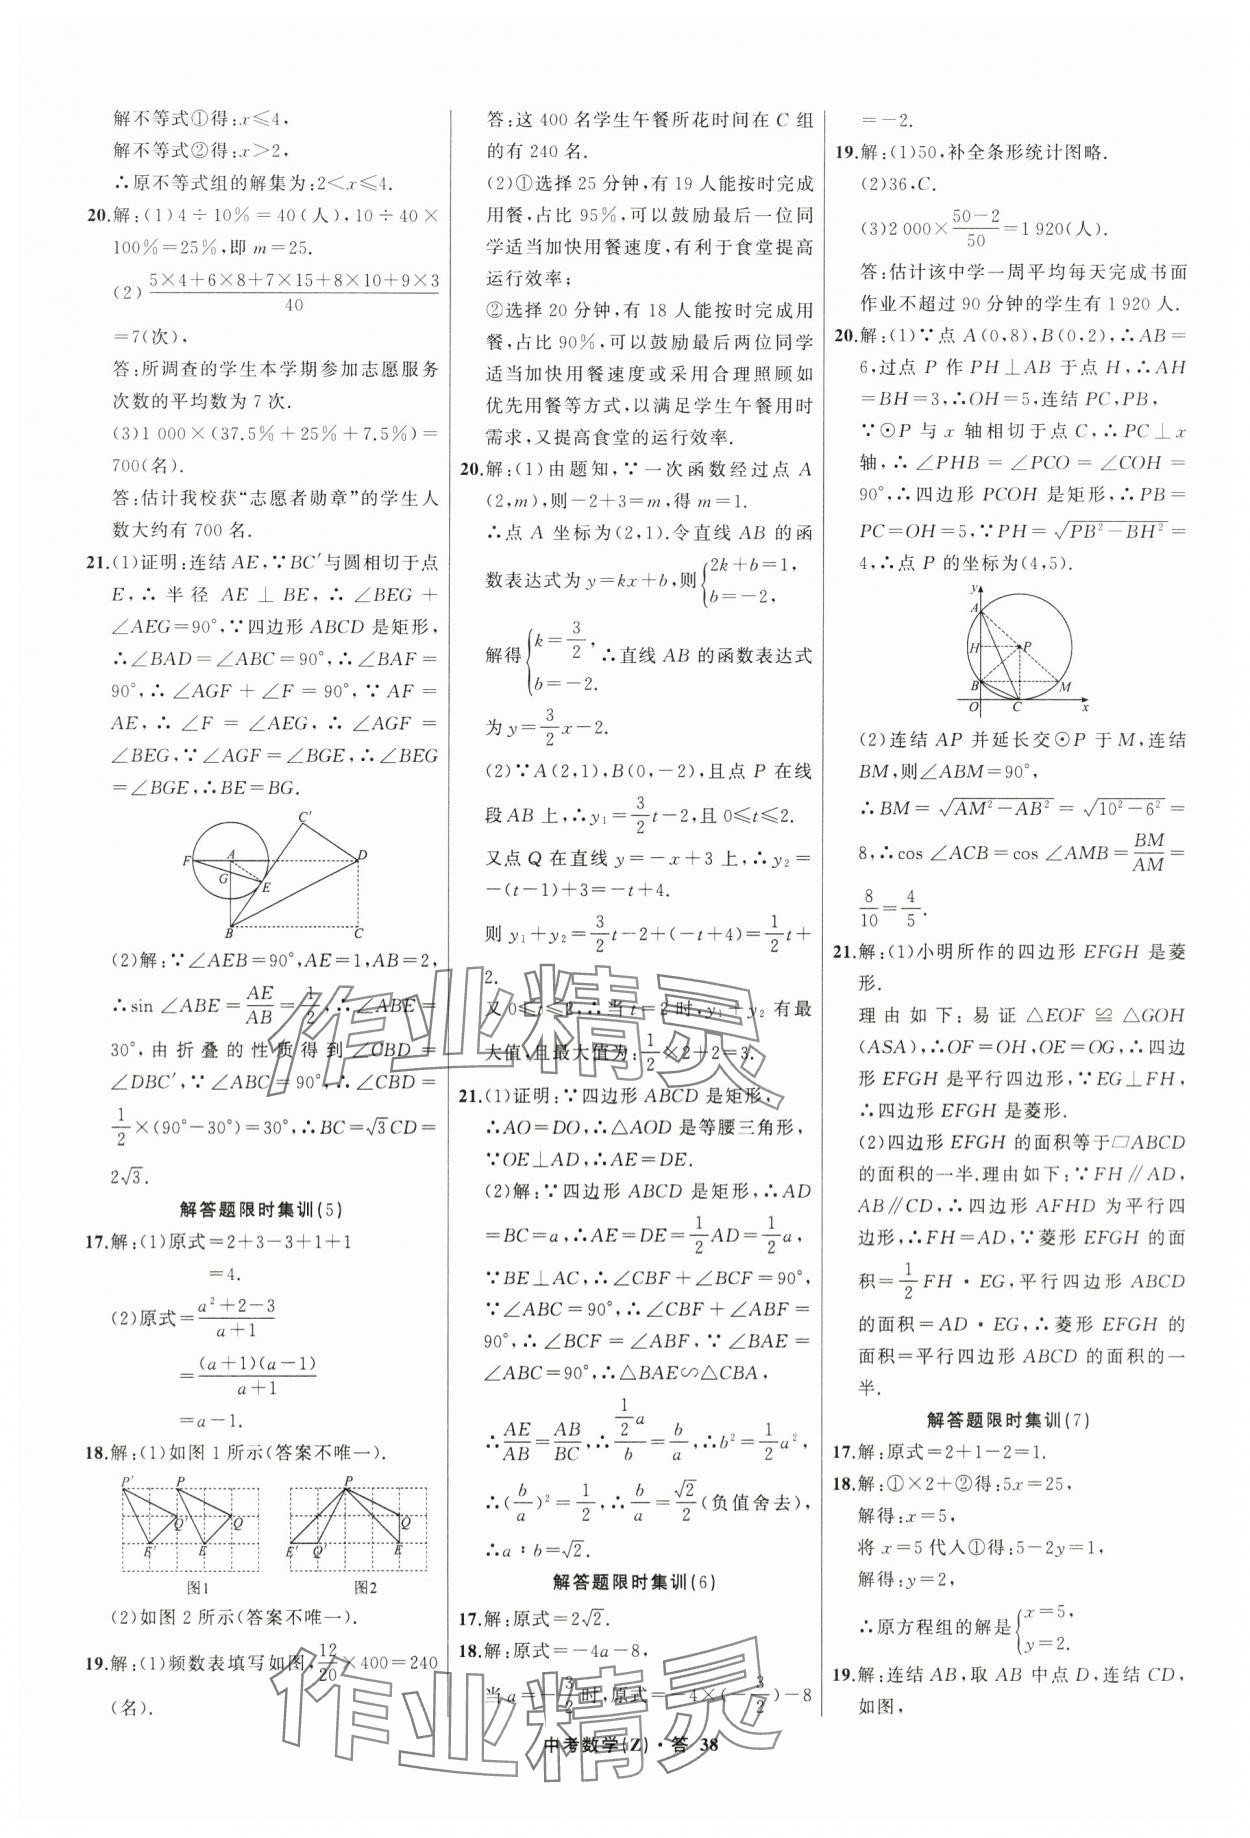 解不等式①得:x≤4,
解不等式②得:x>2,
∴原不等式组的解集为:2<x≤4.
20.解:(1)4÷10%=40(人),10÷40×
100%=25%,即 m=25.
(2)(5×4+6×8+7×15+8×10+9×3)/40
=7(次),
答:所调查的学生本学期参加志愿服务
次数的平均数为 7 次.
(3)1 000×(37.5%+25%+7.5%)=
700(名).
答:估计我校获“志愿者勋章”的学生人
数大约有 700 名.
21.(1)证明:连结 AE,∵BC′与圆相切于点
E,∴半径 AE⊥BE,∴∠BEG+
∠AEG=90°,∵四边形 ABCD 是矩形,
∴∠BAD=∠ABC=90°,∴∠BAF=
90°,∴∠AGF+∠F=90°,∵AF=
AE,∴∠F=∠AEG,∴∠AGF=
∠BEG,∵∠AGF=∠BGE,∴∠BEG
=∠BGE,∴BE=BG.
C′
F A D
G E
B C
(2)解:∵∠AEB=90°,AE=1,AB=2,
∴sin ∠ABE=AE/AB=1/2,∴∠ABE=
30°,由折叠的性质得到∠CBD=
∠DBC′,∵∠ABC=90°,∴∠CBD=
1/2×(90°-30°)=30°,∴BC=√3CD=
2√3.
解答题限时集训(5)
17.解:(1)原式=2+3-3+1+1
=4.
(2)原式=(a²+2-3)/(a+1)
=(a+1)(a-1)/(a+1)
=a-1.
18.解:(1)如图 1 所示(答案不唯一).
P′ P P
Q′ Q Q
E′ E E′ Q′ E
图1 图2
(2)如图 2 所示(答案不唯一).
19.解:(1)频数表填写如图,12/20×400=240
(名).
答:这 400 名学生午餐所花时间在 C 组
的有 240 名.
(2)①选择 25 分钟,有 19 人能按时完成
用餐,占比 95%,可以鼓励最后一位同
学适当加快用餐速度,有利于食堂提高
运行效率;
②选择 20 分钟,有 18 人能按时完成用
餐,占比 90%,可以鼓励最后两位同学
适当加快用餐速度或采用合理照顾如
优先用餐等方式,以满足学生午餐用时
需求,又提高食堂的运行效率.
20.解:(1)由题知,∵一次函数经过点 A
(2,m),则-2+3=m,得 m=1.
∴点 A 坐标为(2,1).令直线 AB 的函
数表达式为 y=kx+b,则{2k+b=1, b=-2,
解得{k=3/2, b=-2. ∴直线 AB 的函数表达式
为 y=3/2x-2.
(2)∵A(2,1),B(0,-2),且点 P 在线
段 AB 上,∴y₁=3/2t-2,且 0≤t≤2.
又点 Q 在直线 y=-x+3 上,∴y₂=
-(t-1)+3=-t+4.
则 y₁+y₂=3/2t-2+(-t+4)=1/2t+
2.
又 0≤t≤2,∴当 t=2时,y₁+y₂ 有最
大值,且最大值为:1/2×2+2=3.
21.(1)证明:∵四边形 ABCD 是矩形,
∴AO=DO,∴△AOD 是等腰三角形,
∵OE⊥AD,∴AE=DE.
(2)解:∵四边形 ABCD 是矩形,∴AD
=BC=a,∴AE=DE=1/2AD=1/2a,
∵BE⊥AC,∴∠CBF+∠BCF=90°,
∵∠ABC=90°,∴∠CBF+∠ABF=
90°,∴∠BCF=∠ABF,∵∠BAE=
∠ABC=90°,∴△BAE∽△CBA,
∴AE/AB=AB/BC,∴(1/2a)/b=b/a,∴b²=1/2a²,
∴(b/a)²=1/2,∴b/a=√2/2(负值舍去),
∴a∶b=√2.
解答题限时集训(6)
17.解:原式=2√2.
18.解:原式=-4a-8,
当 a=-3/2时,原式=-4×(-3/2)-8
=-2.
19.解:(1)50,补全条形统计图略.
(2)36,C.
(3)2 000×(50-2)/50=1 920(人).
答:估计该中学一周平均每天完成书面
作业不超过 90 分钟的学生有 1 920 人.
20.解:(1)∵点 A(0,8),B(0,2),∴AB=
6,过点 P 作 PH⊥AB 于点 H,∴AH
=BH=3,∴OH=5,连结 PC,PB,
∵⊙P 与 x 轴相切于点 C,∴PC⊥x
轴,∴∠PHB=∠PCO=∠COH=
90°,∴四边形 PCOH 是矩形,∴PB=
PC=OH=5,∵PH=√(PB²-BH²)=
4,∴点 P 的坐标为(4,5).
y
A
H P
B M
O C x
(2)连结 AP 并延长交⊙P 于 M,连结
BM,则∠ABM=90°,
∴BM=√(AM²-AB²)=√(10²-6²)=
8,∴cos ∠ACB=cos ∠AMB=BM/AM=
8/10=4/5.
21.解:(1)小明所作的四边形 EFGH 是菱
形.
理由如下:易证△EOF≌△GOH
(ASA),∴OF=OH,OE=OG,∴四边
形 EFGH 是平行四边形,∵EG⊥FH,
∴四边形 EFGH 是菱形.
(2)四边形 EFGH 的面积等于▱ABCD
的面积的一半.理由如下:∵FH∥AD,
AB∥CD,∴四边形 AFHD 为平行四
边形,∴FH=AD,∵菱形 EFGH 的面
积=1/2FH·EG,平行四边形 ABCD
的面积=AD·EG,∴菱形 EFGH 的
面积=平行四边形 ABCD 的面积的一
半.
解答题限时集训(7)
17.解:原式=2+1-2=1.
18.解:①×2+②得:5x=25,
解得:x=5,
将 x=5代入①得:5-2y=1,
解得:y=2,
∴原方程组的解是{x=5, y=2.
19.解:连结 AB,取 AB 中点 D,连结 CD,
如图,
中考数学(Z)·答 38
作业精灵
作业精灵